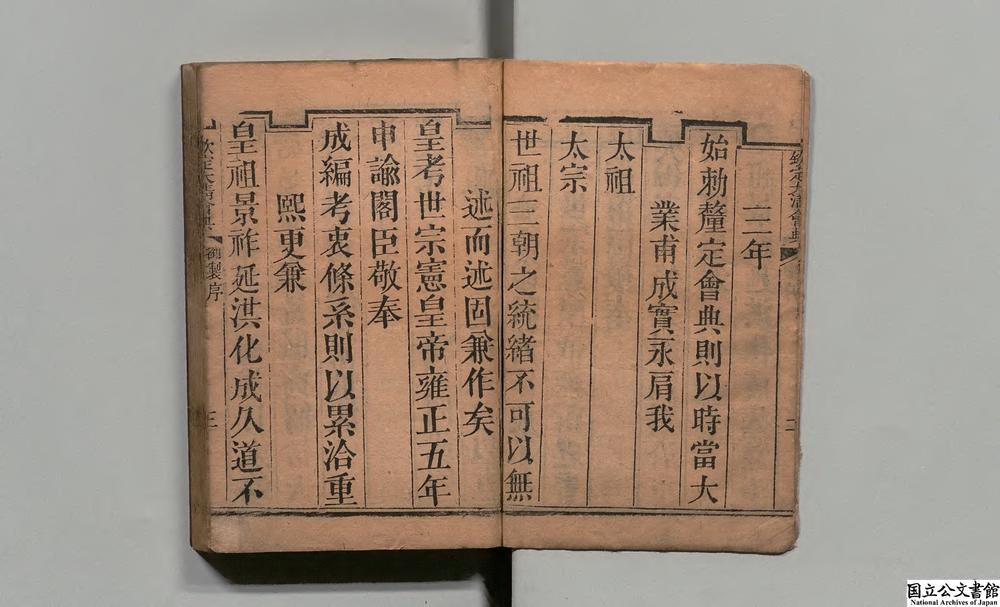 欽定大清會典
二
三年
始勅釐定會典則以時當大
業甫成實永肩我
太祖
太宗
世祖三朝之統緒不可以無
述而述固兼作矣
皇考世宗憲皇帝雍正五年
申諭閣臣敬奉
成編考衷條系則以累洽重
熙更兼
皇祖景祚延洪化成久道不
欽定大清會典 御製序
三
国立公文書館
National Archives of Japan